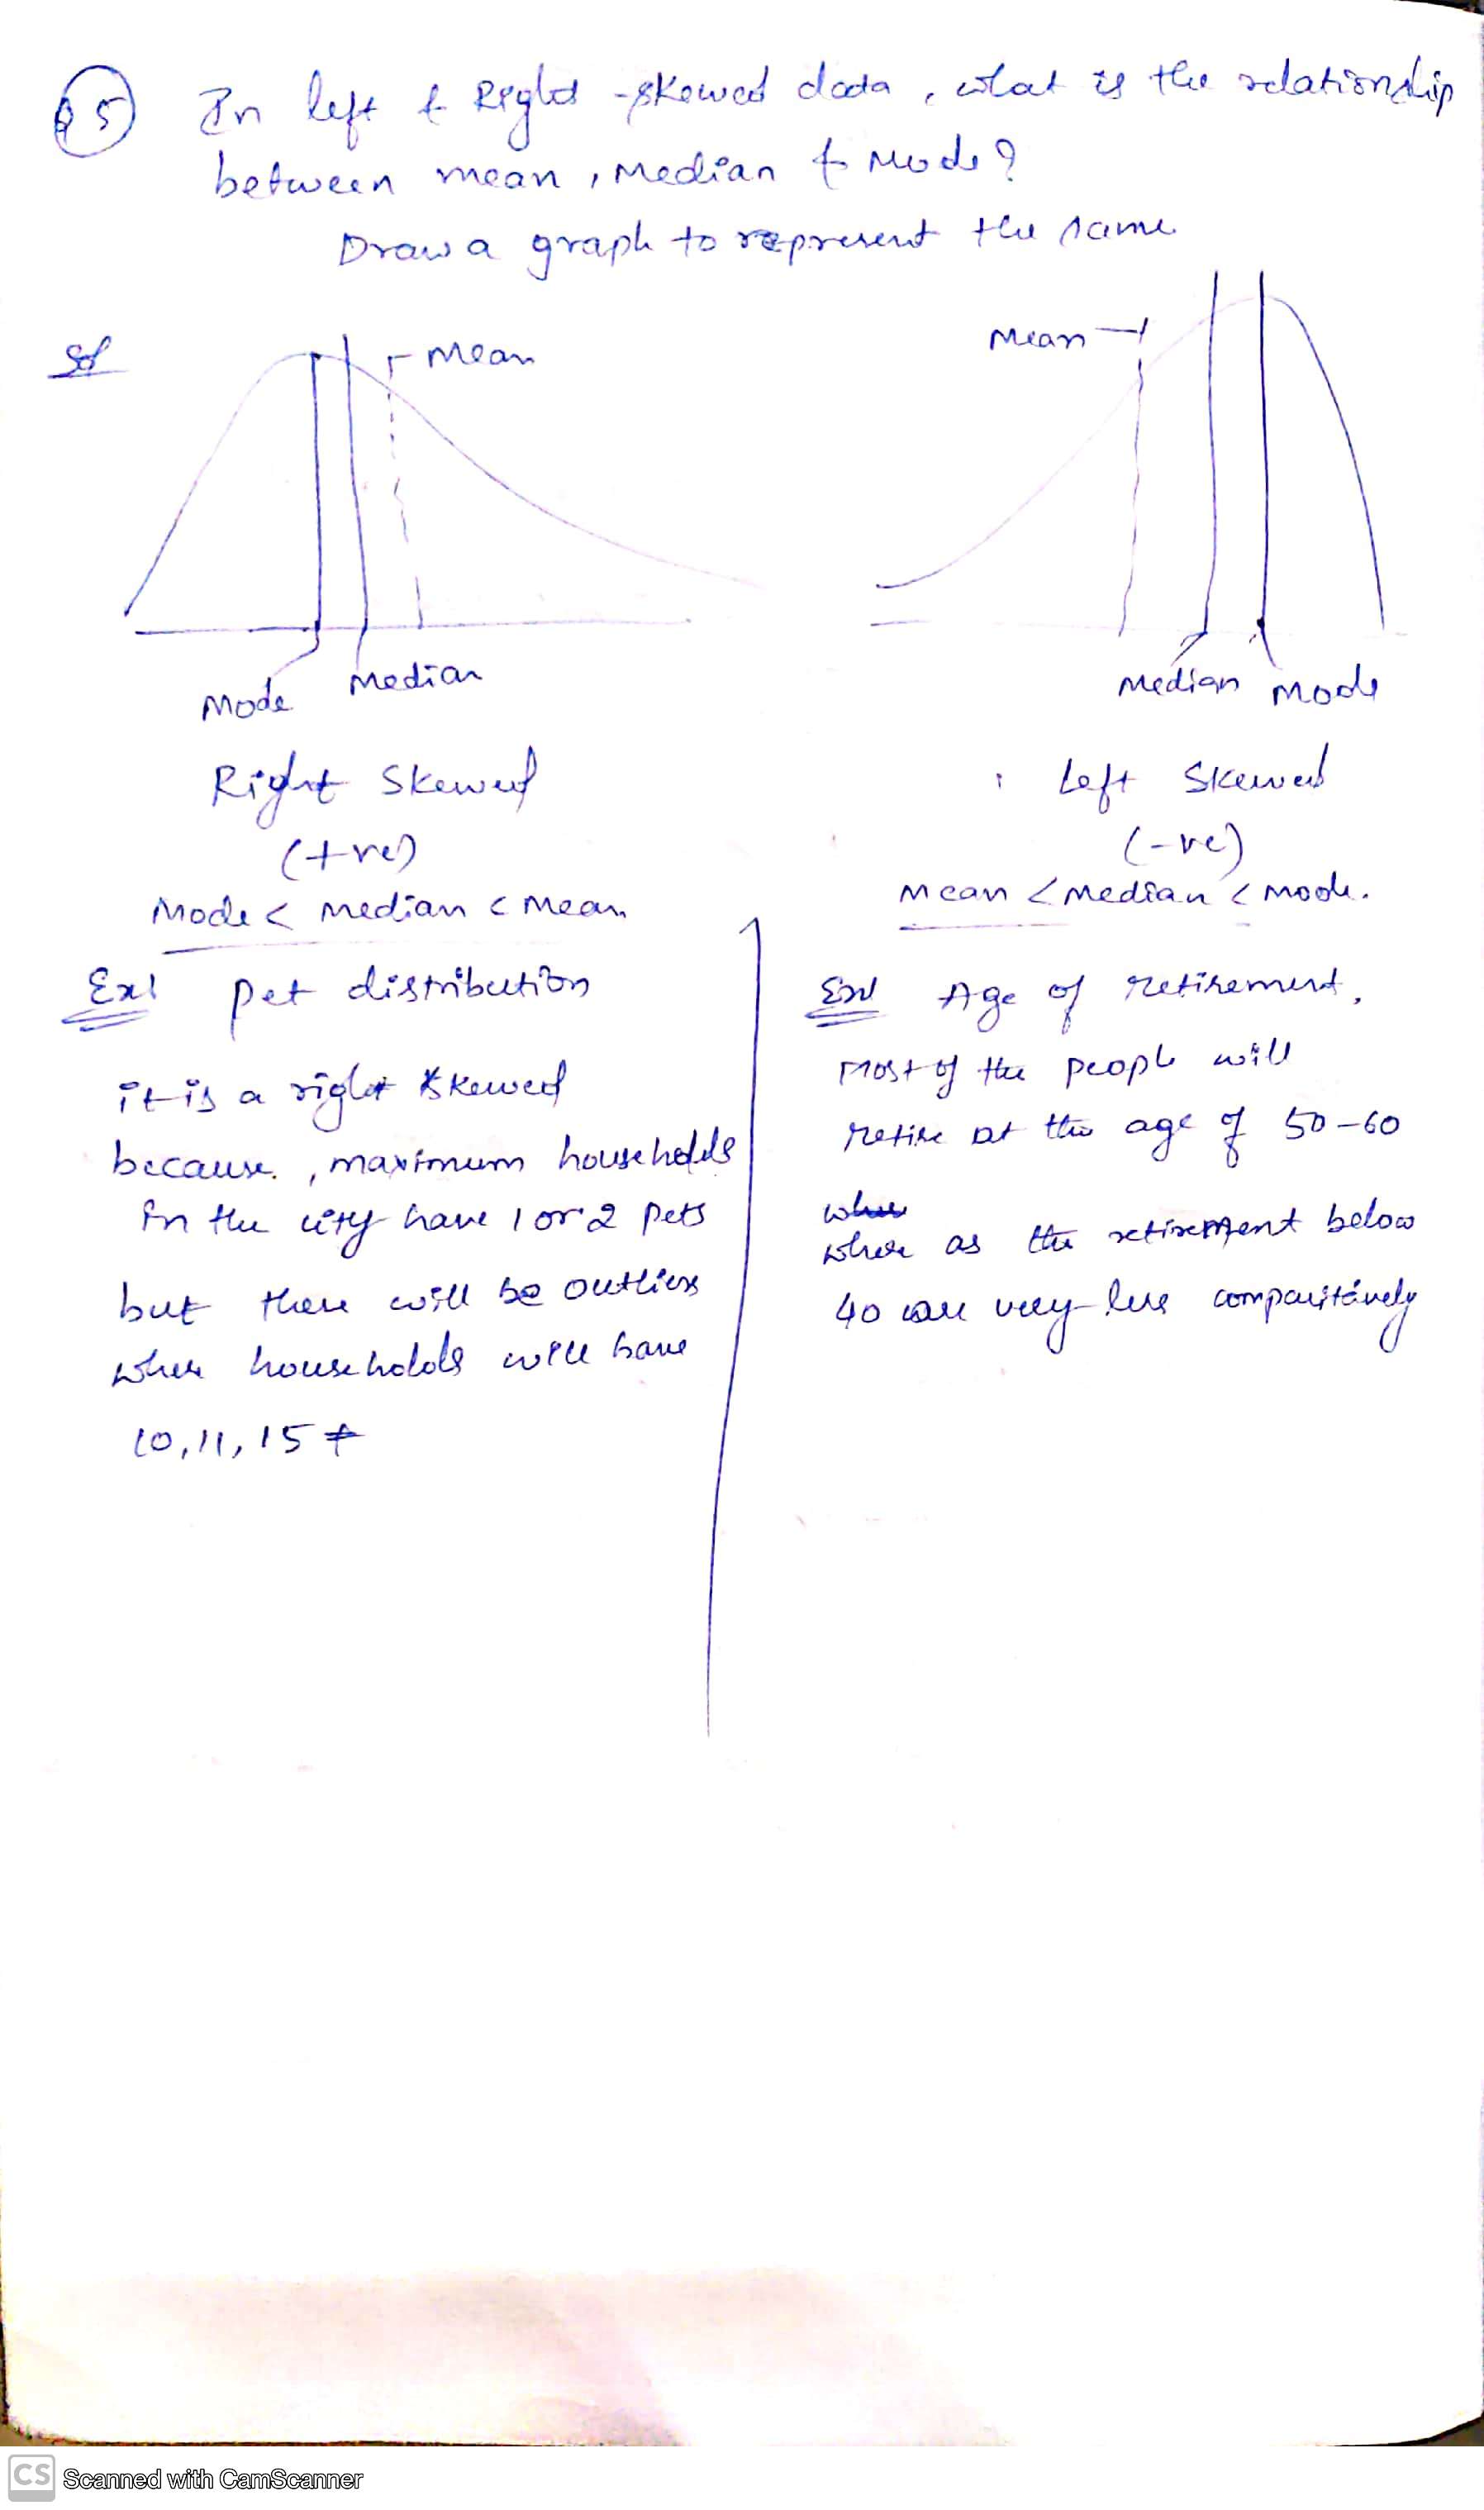 Q5 In left & Right -skewed data, what is the relationship
between mean, Median & Mode?
Draw a graph to represent the same
Sol
Mean
Mode Median
Right Skewed
(+ve)
Mode < median < mean
Mean
Median Mode
Left Skewed
(-ve)
Mean < Median < Mode.
Ex! Pet distribution
it is a right skewed
because, maximum households
in the city have 1 or 2 pets
but there will be outliers
where households will have
10, 11, 15 +
Ex! Age of retirement.
Most of the people will
retire at the age of 50-60
where as the retirement below
40 are very less comparitively
CS Scanned with CamScanner